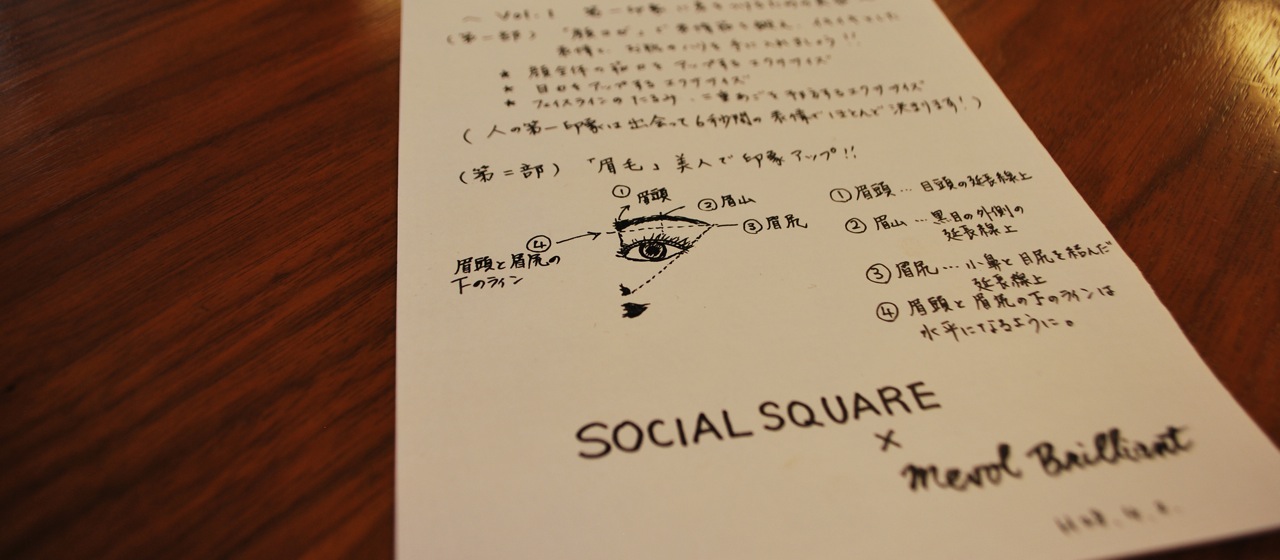 〜 Vol.1 第一印象
(第一部) 「顔ヨガ」で表情筋を鍛え、イキイキした
表情と お肌のハリを手に入れましょう!!
★ 顔全体の筋力をアップするエクササイズ
★ 目力をアップするエクササイズ
★ フェイスラインのたるみ、二重あごを予防するエクササイズ
( 人の第一印象は出会って6秒間の表情でほとんど決まります! )
(第二部) 「眉毛」美人で印象アップ!!
① 眉頭
② 眉山
③ 眉尻
④
眉頭と眉尻の
下のライン
① 眉頭 … 目頭の延長線上
② 眉山 … 黒目の外側の
延長線上
③ 眉尻 … 小鼻と目尻を結んだ
延長線上
④ 眉頭と眉尻の下のラインは
水平になるように。
SOCIAL SQUARE
×
Merol Brilliant